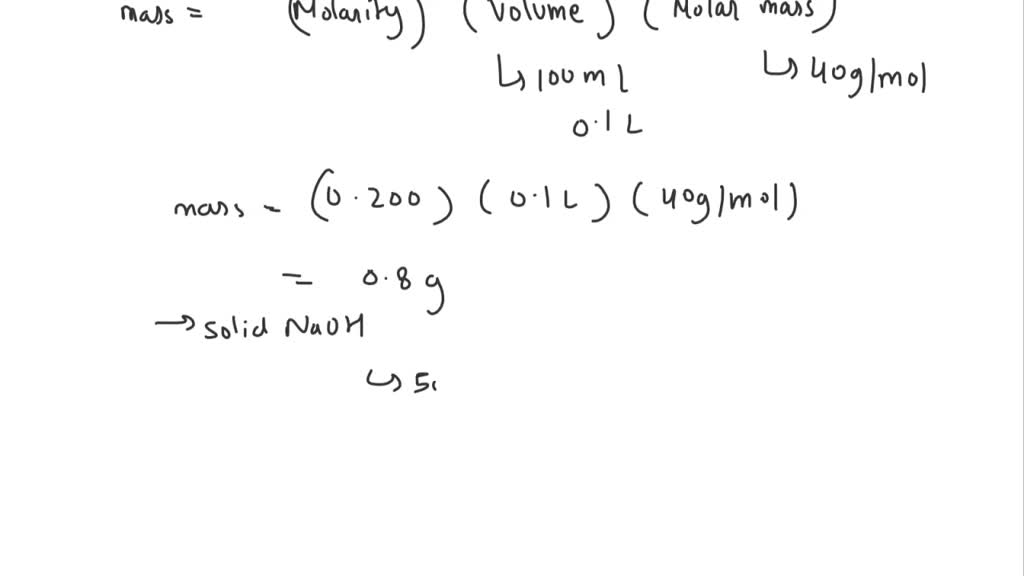 mass = (Molarity) (Volume) (Molar mass)
↳ 100 ml ↳ 40g/mol
0.1 L
mass - (0.200) (0.1L) (40g/mol)
= 0.8 g
→ solid NaOH
↳